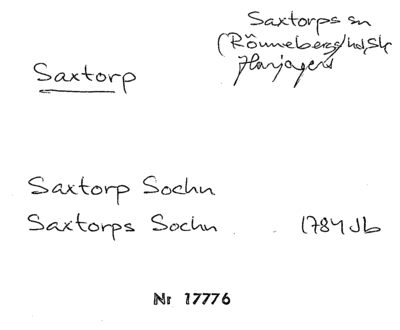 Saxtorps sn
(Rönnebergs hd, Sk
Harjagers
Saxtorp
Saxtorp Sochn
Saxtorps Sochn 1784 Jb
Nr 17776